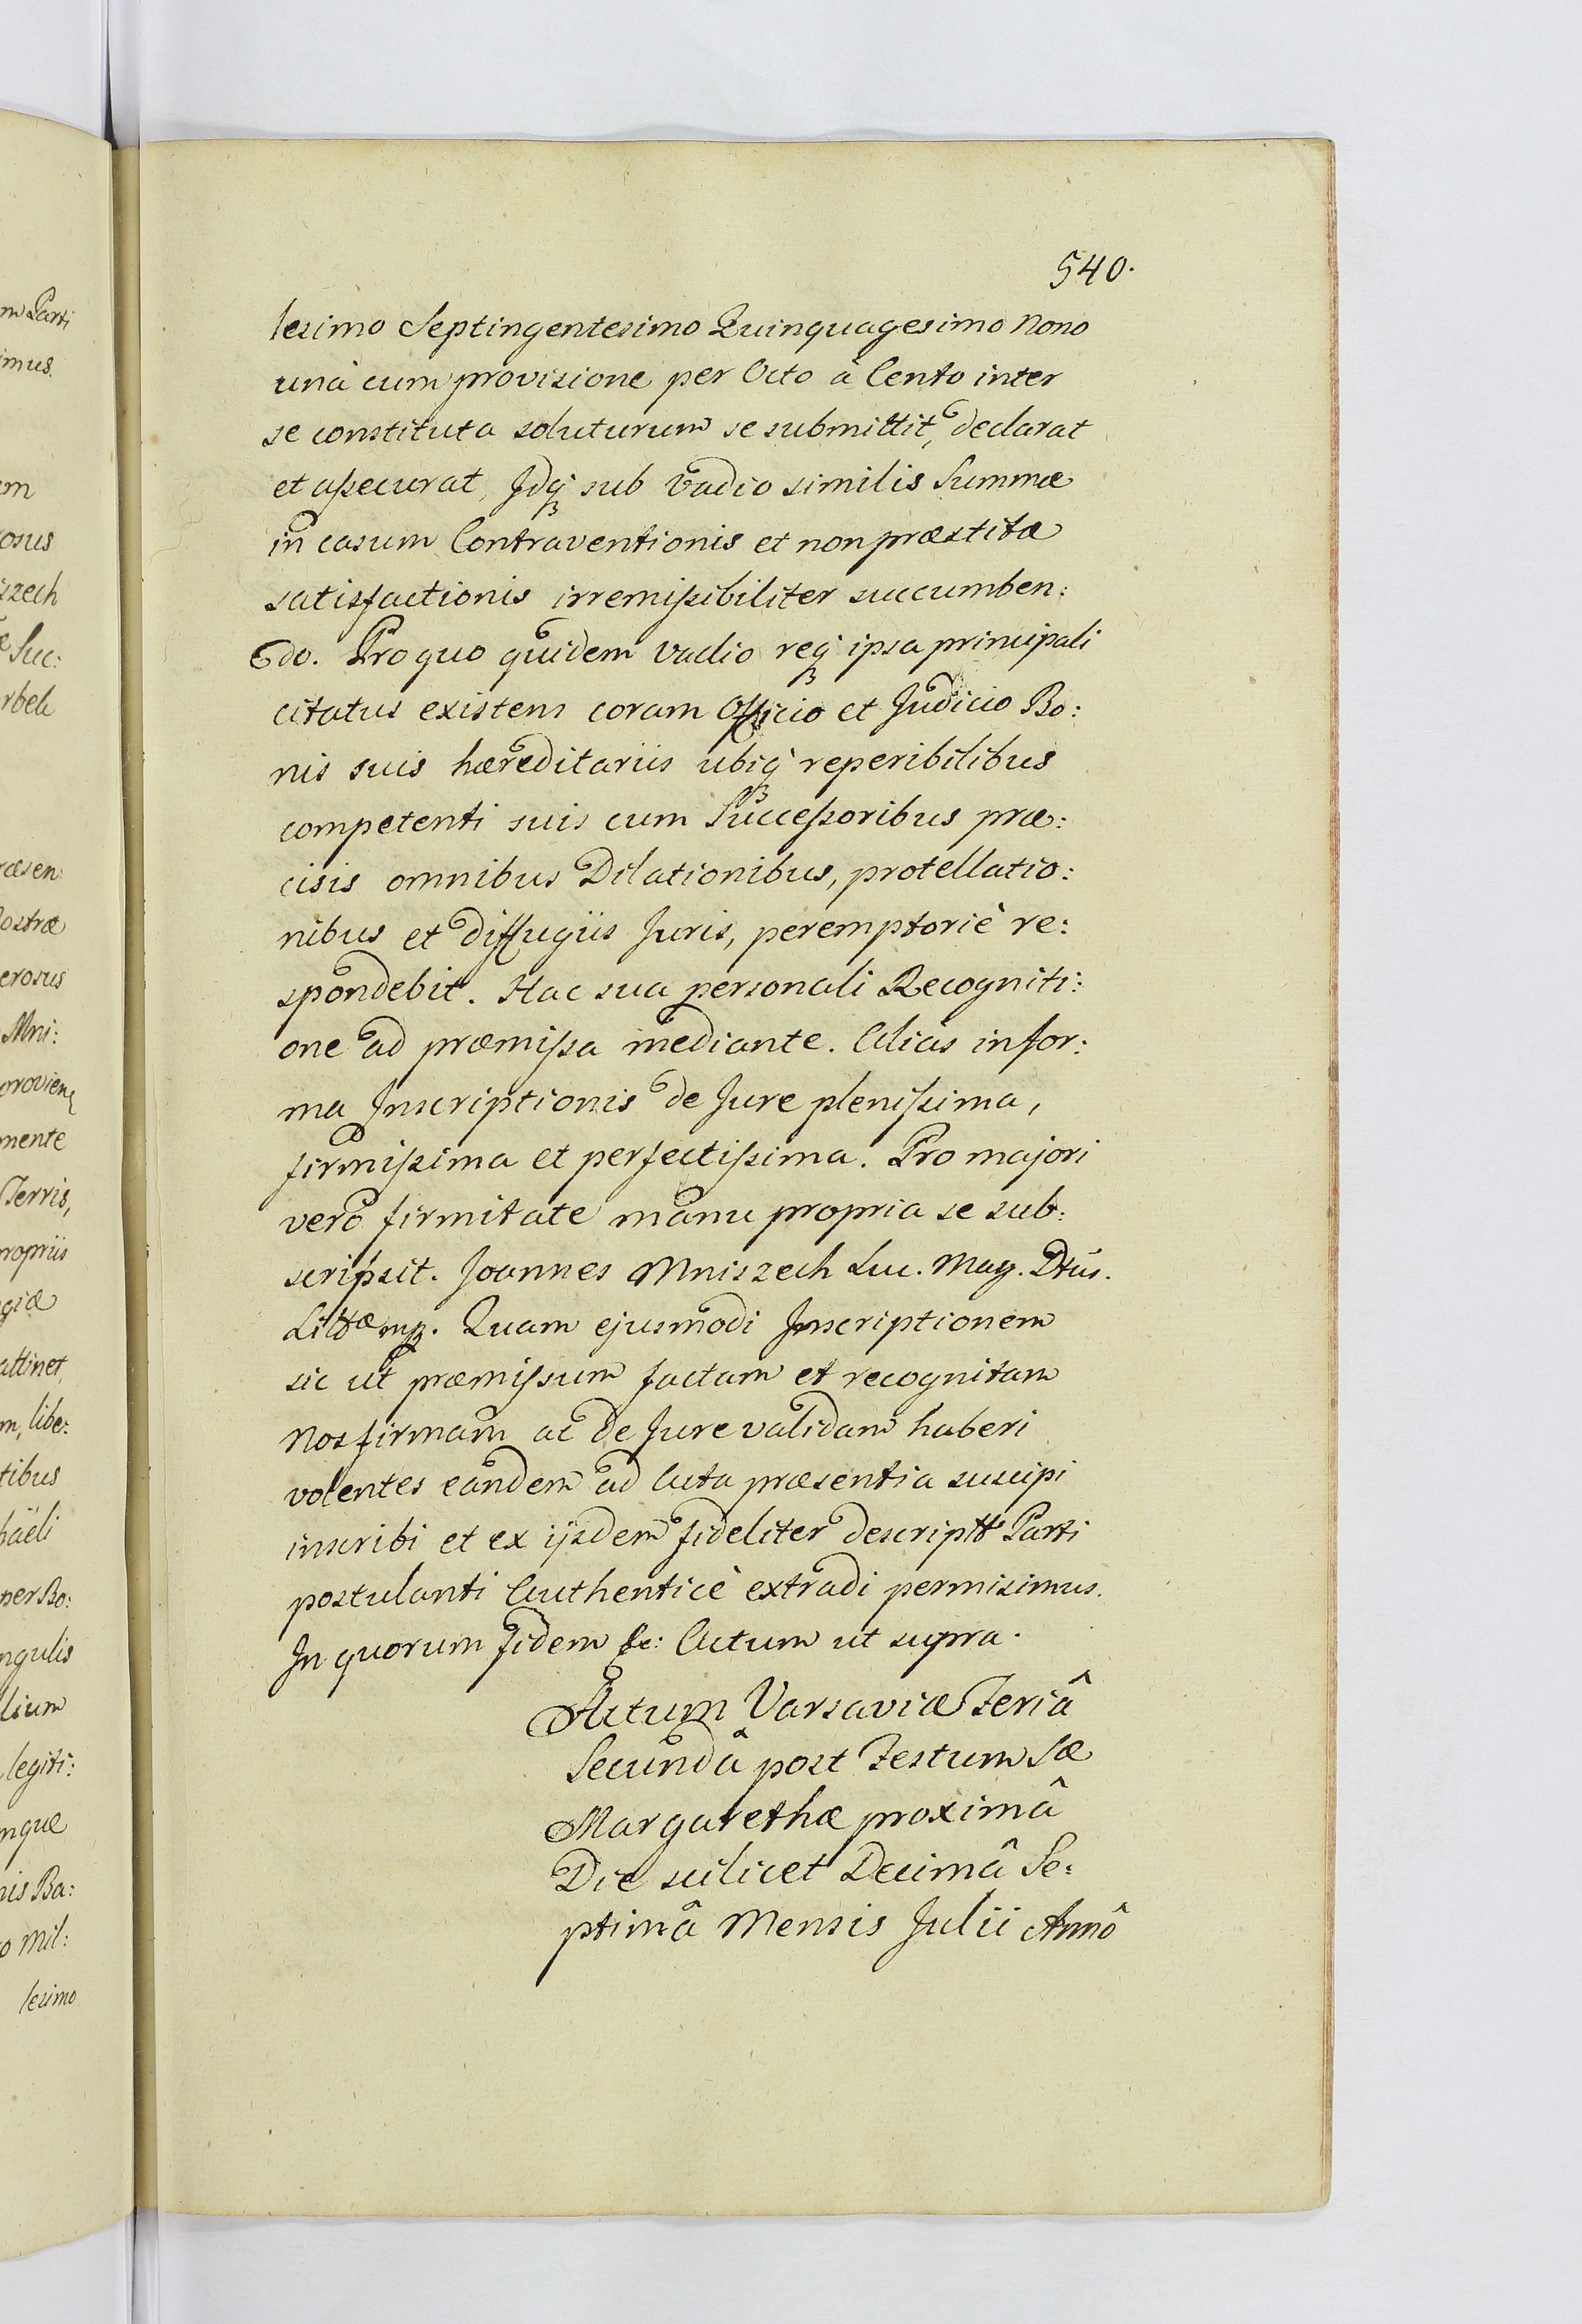 540.
lesimo Septingentesimo Quinquagesimo Nono
unà cum provisione per Octo à Cento inter
se constituta soluturum se submittit, declarat
et assecurat, Idq́ꝫ sub Vadio similis Summæ
in casum Contraventionis et non præstitæ
satisfactionis irremissibiliter succumben:
do. Pro quo quidem vadio reqꝫ ipsa principali
citatus existens coram Officio et Judicio Bo:
nis suis hæreditariis ubiq́ꝫ reperibilibus
competenti suis cum Successoribus præ:
cisis omnibus Dilationibus, protellatio:
nibus et diffugiis Juris, peremptoriè re:
spondebit. Hac sua personali Recogniti:
one ad præmissa mediante. Alias in for:
ma Inscriptionis de Jure plenissima,
firmissima et perfectissima. Pro majori
verò firmitate manu propria se sub:
scripsit. Joannes Mniszech Suc. Mag. Dtûs.
Litt æ mp. Quam ejusmodi Inscriptionem
sic ut præmissum factam et recognitam
Nos firmam ac de Jure validam haberi
volentes eandem ad Acta præsentia suscipi
inscribi et ex ijsdem fideliter descriptt Parti
postulanti Authenticè extradi permisimus.
In quorum fidem &c: Actum ut supra.
Actum Varsaviæ Feriâ
Secundâ post Festum Sæ
Margarethæ proximâ
Die scilicet Decimâ Se:
ptimâ Mensis Julii Annô
m Parti
imus.
em
osus
szech
Suc:
ræsen:
ostræ
erosus
Mni:
mente
Terris,
propriis
giæ
attinet,
m, liber:
tibus
haëli
per Bo:
ngulis
lium
legiti:
nque
nis Ba:
o Mil:
lesimo